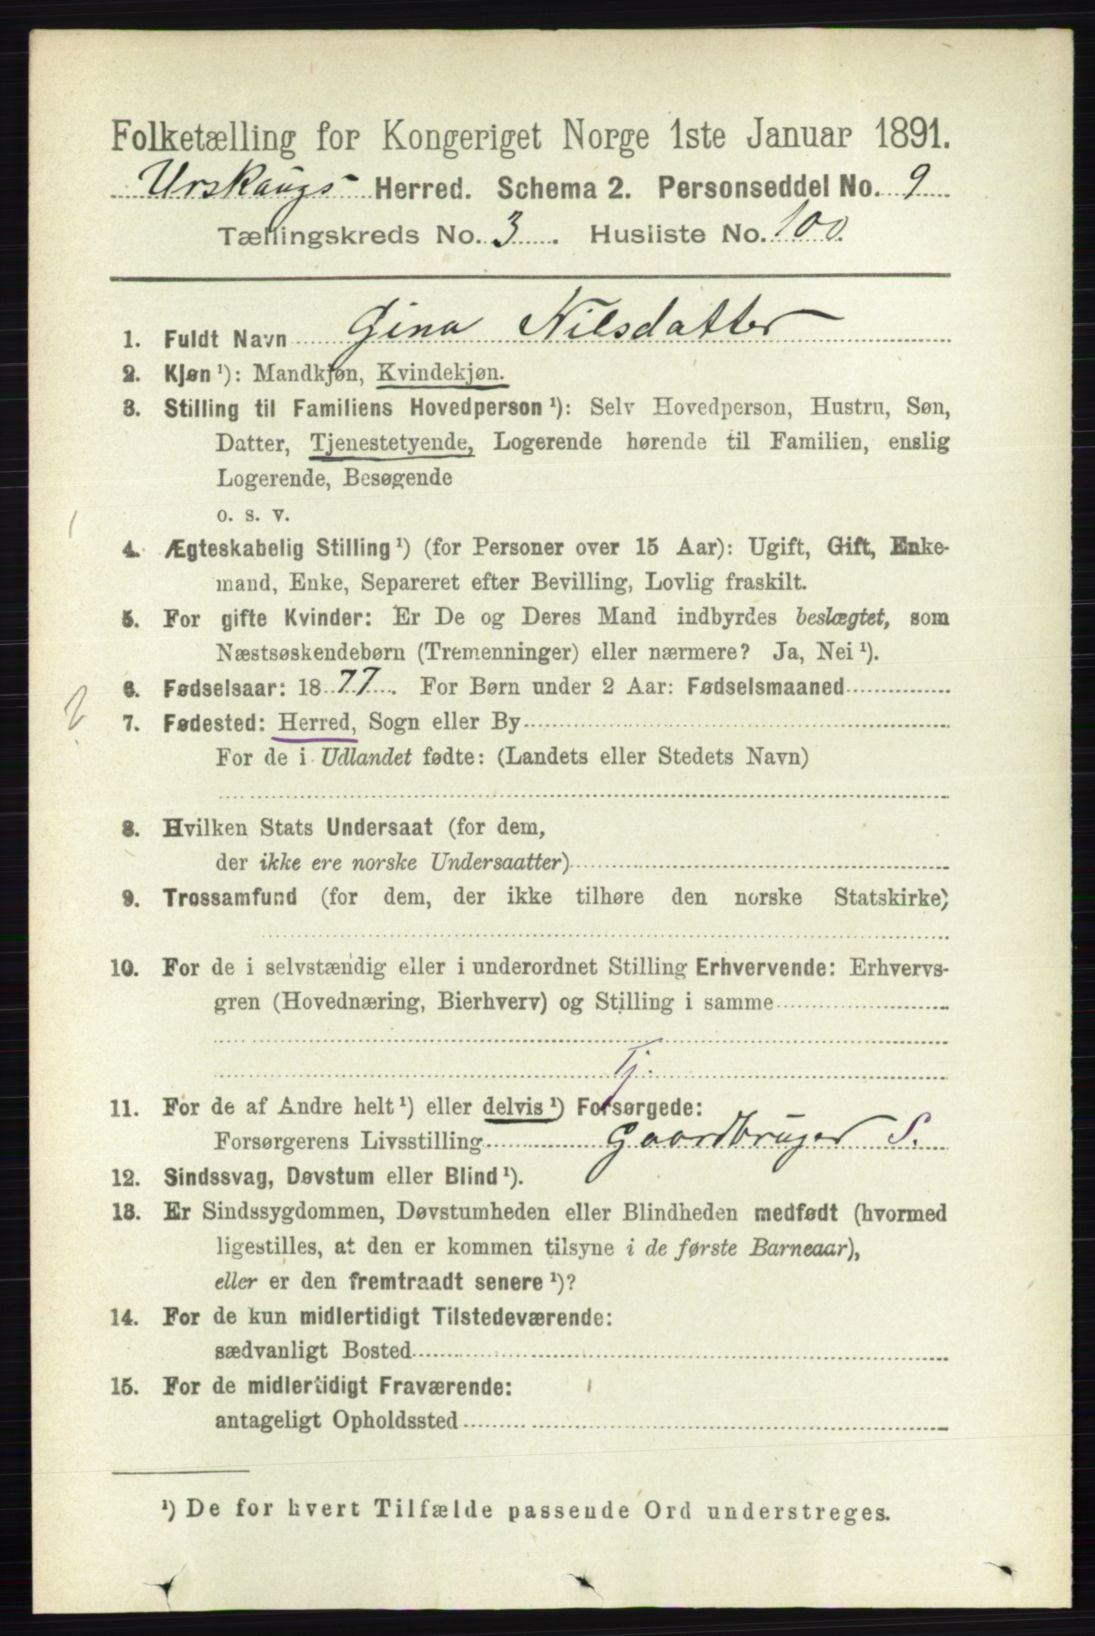 Folketælling for Kongeriget Norge 1ste Januar 1891.
Urskaugs Herred. Schema 2. Personseddel No. 9
Tællingskreds No. 3. Husliste No. 100.
1. Fuldt Navn Gina Nilsdatter
2. Kjøn ¹): Mandkjøn, Kvindekjøn.
3. Stilling til Familiens Hovedperson ¹): Selv Hovedperson, Hustru, Søn,
Datter, Tjenestetyende, Logerende hørende til Familien, enslig
Logerende, Besøgende
o. s. v.
4. Ægteskabelig Stilling ¹) (for Personer over 15 Aar): Ugift, Gift, Enke-
mand, Enke, Separeret efter Bevilling, Lovlig fraskilt.
5. For gifte Kvinder: Er De og Deres Mand indbyrdes beslægtet, som
Næstsøskendebørn (Tremenninger) eller nærmere? Ja, Nei ¹).
6. Fødselsaar: 1877. For Børn under 2 Aar: Fødselsmaaned
7. Fødested: Herred, Sogn eller By
For de i Udlandet fødte: (Landets eller Stedets Navn)
8. Hvilken Stats Undersaat (for dem,
der ikke ere norske Undersaatter)
9. Trossamfund (for dem, der ikke tilhøre den norske Statskirke)
10. For de i selvstændig eller i underordnet Stilling Erhvervende: Erhvervs-
gren (Hovednæring, Bierhverv) og Stilling i samme
Tj.
11. For de af Andre helt ¹) eller delvis ¹) Forsørgede:
Forsørgerens Livsstilling Gaardbruger S.
12. Sindssvag, Døvstum eller Blind ¹).
13. Er Sindssygdommen, Døvstumheden eller Blindheden medfødt (hvormed
ligestilles, at den er kommen tilsyne i de første Barneaar),
eller er den fremtraadt senere ¹)?
14. For de kun midlertidigt Tilstedeværende:
sædvanligt Bosted
15. For de midlertidigt Fraværende:
antageligt Opholdssted
¹) De for hvert Tilfælde passende Ord understreges.